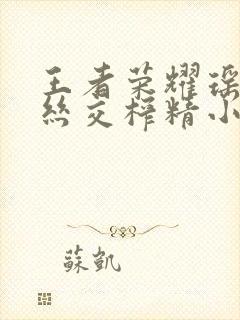 王者荣耀瑶
丝交榨精小
蘇凱